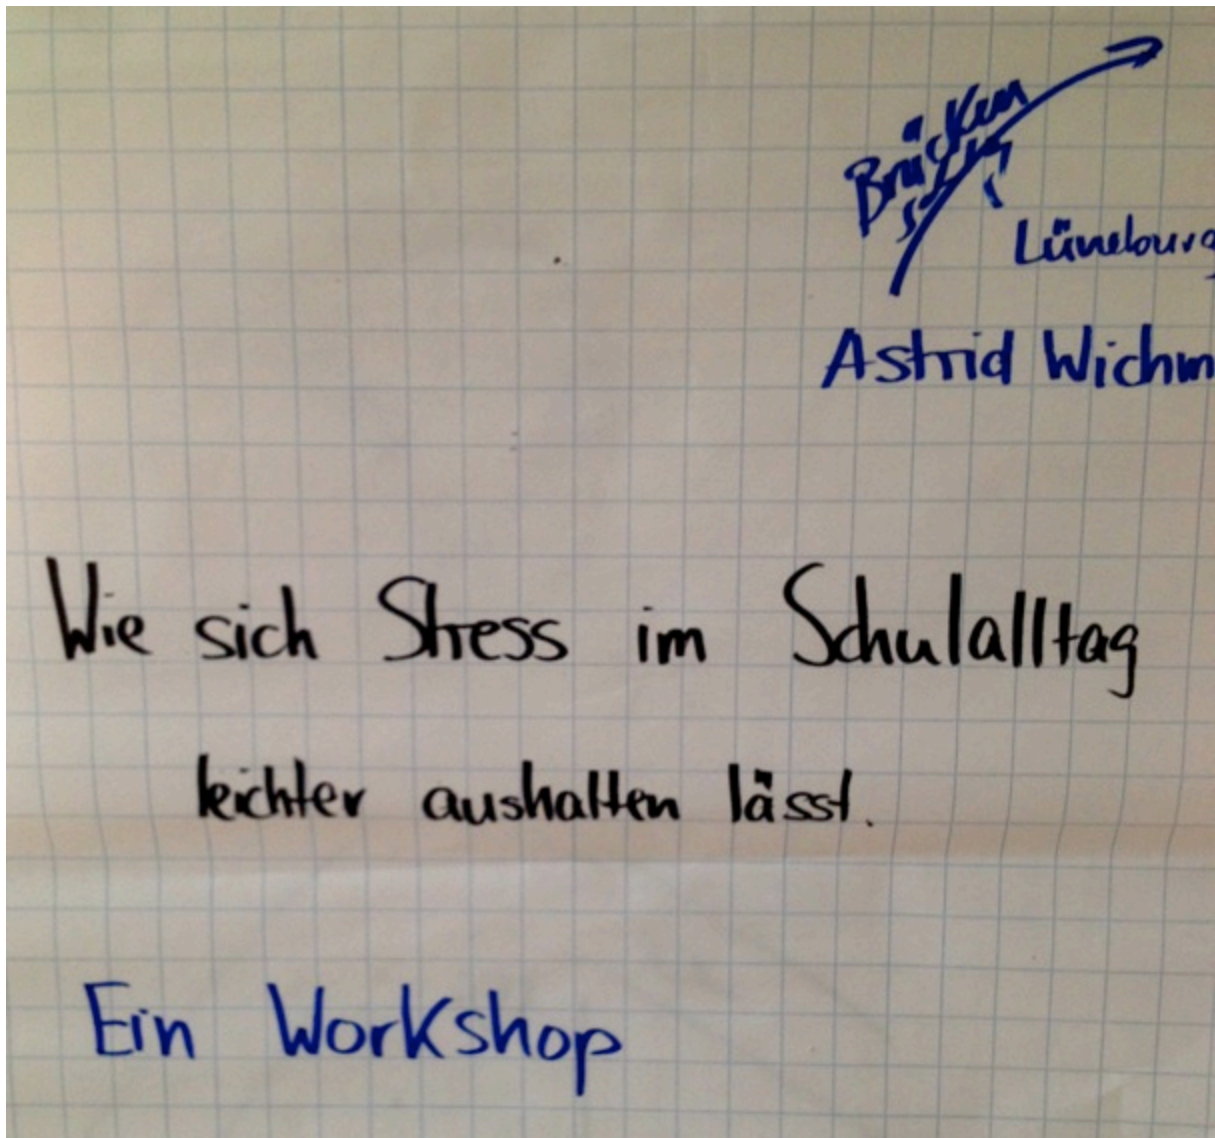 Brücken
Lüneburg
Astrid Wichm
Wie sich Stress im Schulalltag
leichter aushalten lässt.
Ein Workshop